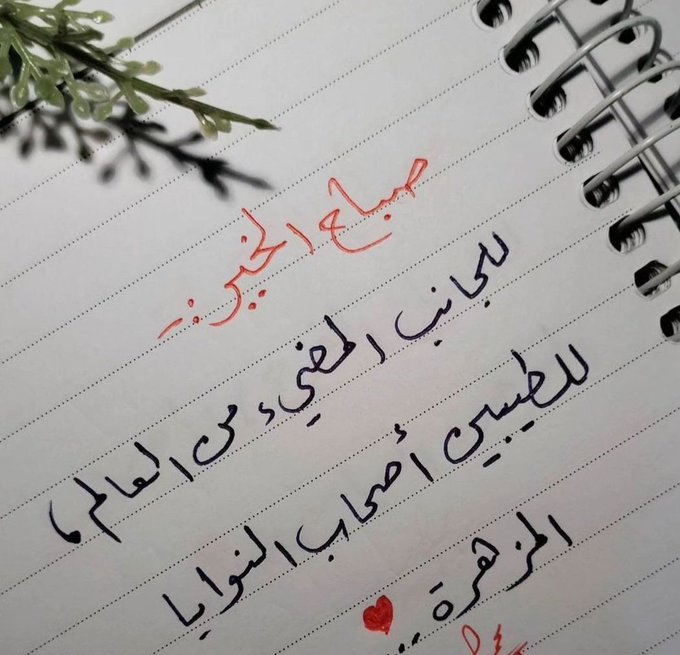 صباح الخير :-
للجانب المضيء من العالم ،
للطيبين أصحاب النوايا
المزهرة ..